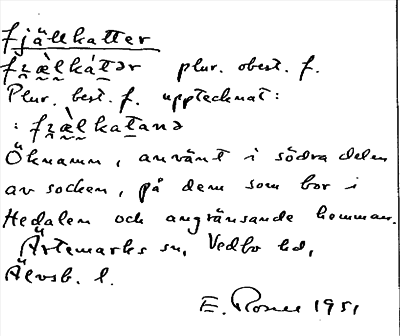 fjällkatter
fʒæ̀lkátər plur. obest. f.
Plur. best. f. upptecknat:
: fʒæ̀lkatanə
Öknamn, använt i södra delen
av socken, på dem som bor i
Hedalen och angränsande hemman.
Ärtemarks sn, Vedbo hd,
Älvsb. l.
E. Rosell 1951